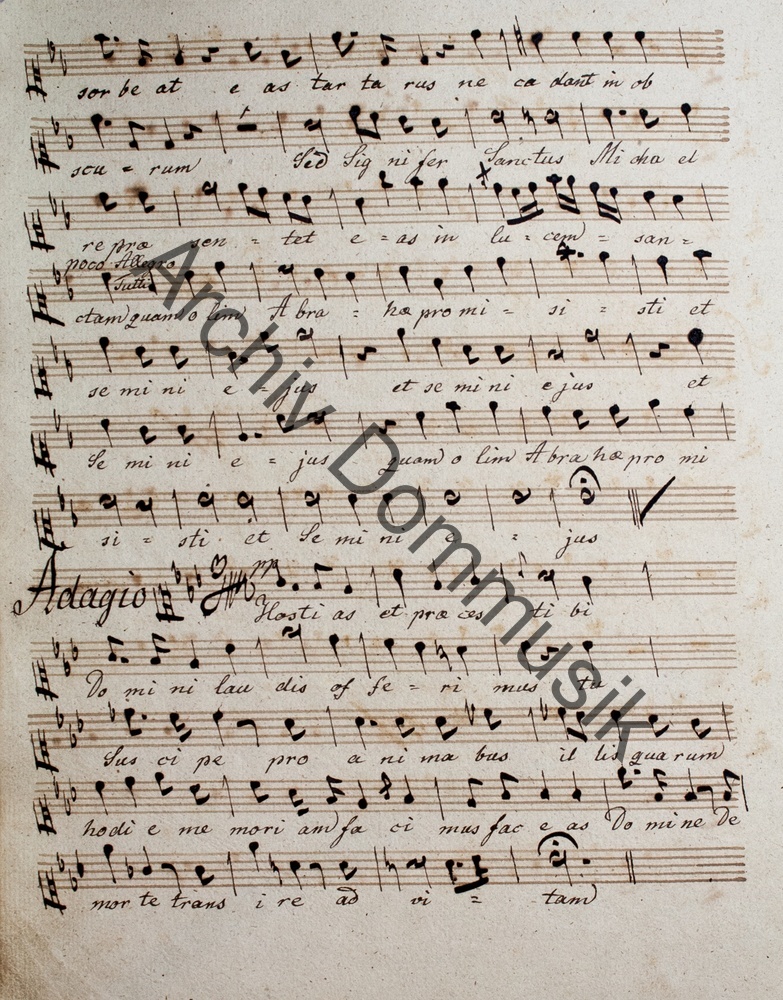 sor be at e as tar ta rus ne ca dant in ob
scu = rum Sed Sig ni fer Sanctus Mi cha el
re præ sen = tet e = as in lu = cem = san =
poco Allegro
Tutti
ctam quam o lim A bra = hæ pro mi = si = sti et
se mi ni e = jus et se mi ni ejus et
Se mi ni e = jus quam o lim A bra hæ pro mi
si = sti et Se mi ni e = jus
Adagio pp
Hosti as et præ ces ti bi
Do mi ni lau dis of fe = ri mus tu
Sus ci pe pro a ni ma bus il lis quarum
hodi e me mori am fa ci mus fac e as Do mi ne De
mor te trans i re ad vi = tam
Archiv Dommusik